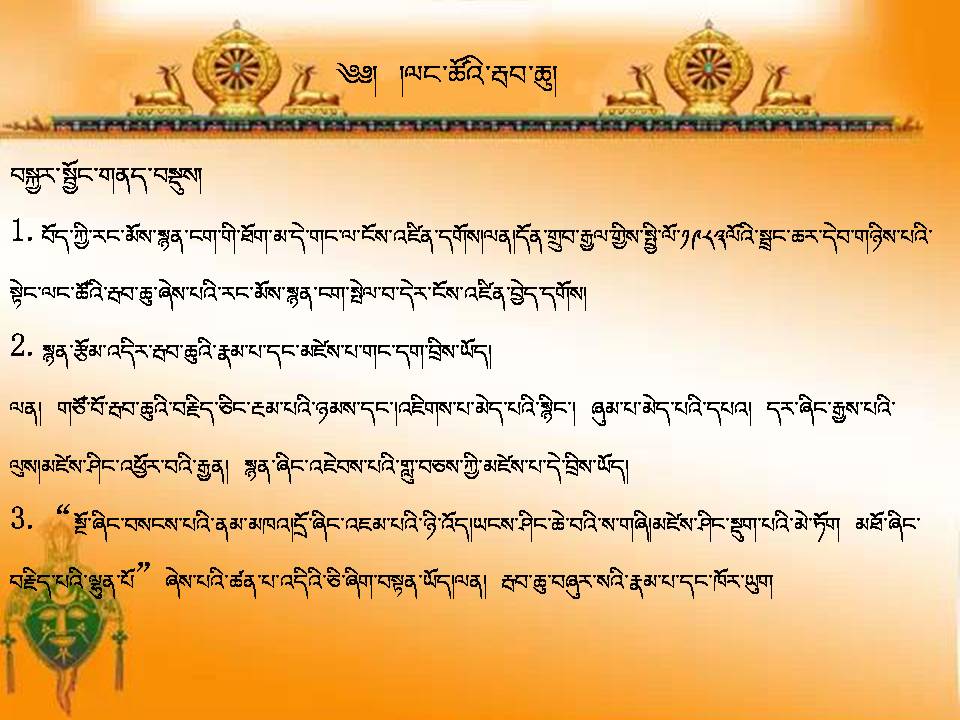 ༄༅། །ལང་ཚོའི་རྦབ་ཆུ།
བསྐྱར་སྦྱོང་གནད་བསྡུས།
1. བོད་ཀྱི་རང་མོས་སྙན་ངག་གི་ཐོག་མ་དེ་གང་ལ་ངོས་འཛིན་དགོས།ལན།དོན་གྲུབ་རྒྱལ་གྱིས་སྤྱི་ལོ་༡༩༨༣ལོའི་སྦྲང་ཆར་དེབ་གཉིས་པའི་
སྟེང་ལང་ཚོའི་རྦབ་ཆུ་ཞེས་པའི་རང་མོས་སྙན་ངག་སྤེལ་བ་དེར་ངོས་འཛིན་བྱེད་དགོས།
2. སྙན་རྩོམ་འདིར་རྦབ་ཆུའི་རྣམ་པ་དང་མཛེས་པ་གང་དག་བྲིས་ཡོད།
ལན། གཙོ་བོ་རྦབ་ཆུའི་བརྗིད་ཅིང་ངམ་པའི་ཉམས་དང་།འཇིགས་པ་མེད་པའི་སྙིང་། ཞུམ་པ་མེད་པའི་དཔའ། དར་ཞིང་རྒྱས་པའི་
ལུས།མཛེས་ཤིང་འཕྱོར་བའི་རྒྱན། སྙན་ཞིང་འཇེབས་པའི་གླུ་བཅས་ཀྱི་མཛེས་པ་དེ་བྲིས་ཡོད།
3. “སྔོ་ཞིང་བསངས་པའི་ནམ་མཁའ།དྲོ་ཞིང་འཇམ་པའི་ཉི་འོད།ཡངས་ཤིང་ཆེ་བའི་ས་གཞི།མཛེས་ཤིང་སྡུག་པའི་མེ་ཏོག མཐོ་ཞིང་
བརྗིད་པའི་ལྷུན་པོ” ཞེས་པའི་ཚན་པ་འདིའི་ཅི་ཞིག་བསྟན་ཡོད།ལན། རྦབ་ཆུ་བཞུར་སའི་རྣམ་པ་དང་ཁོར་ཡུག